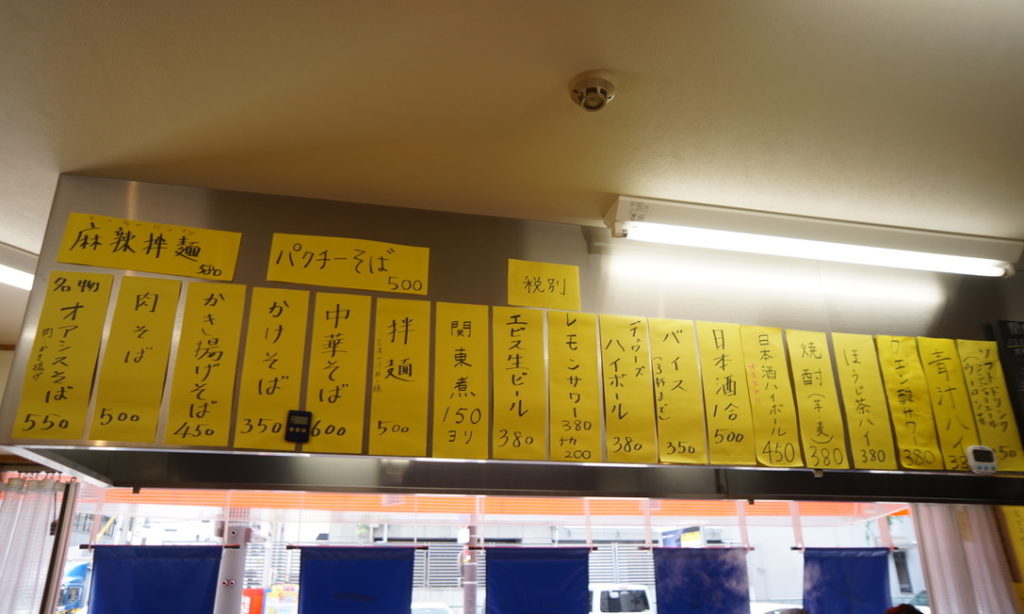 麻辣拌麺
580
パクチーそば
500
税別
名物
オアシスそば
肉かき揚げ
550
肉そば
500
かき揚げそば
450
かけそば
350
中華そば
600
拌麺
500
関東煮
150
ヨリ
エビス生ビール
380
レモンサワー
380
ナカ
200
デュワーズ
ハイボール
380
バイス
350
日本酒一合
500
日本酒ハイボール
450
焼酎(芋麦)
380
ほうじ茶ハイ
380
クエン酸サワー
380
青汁ハイ
ソフトドリンク